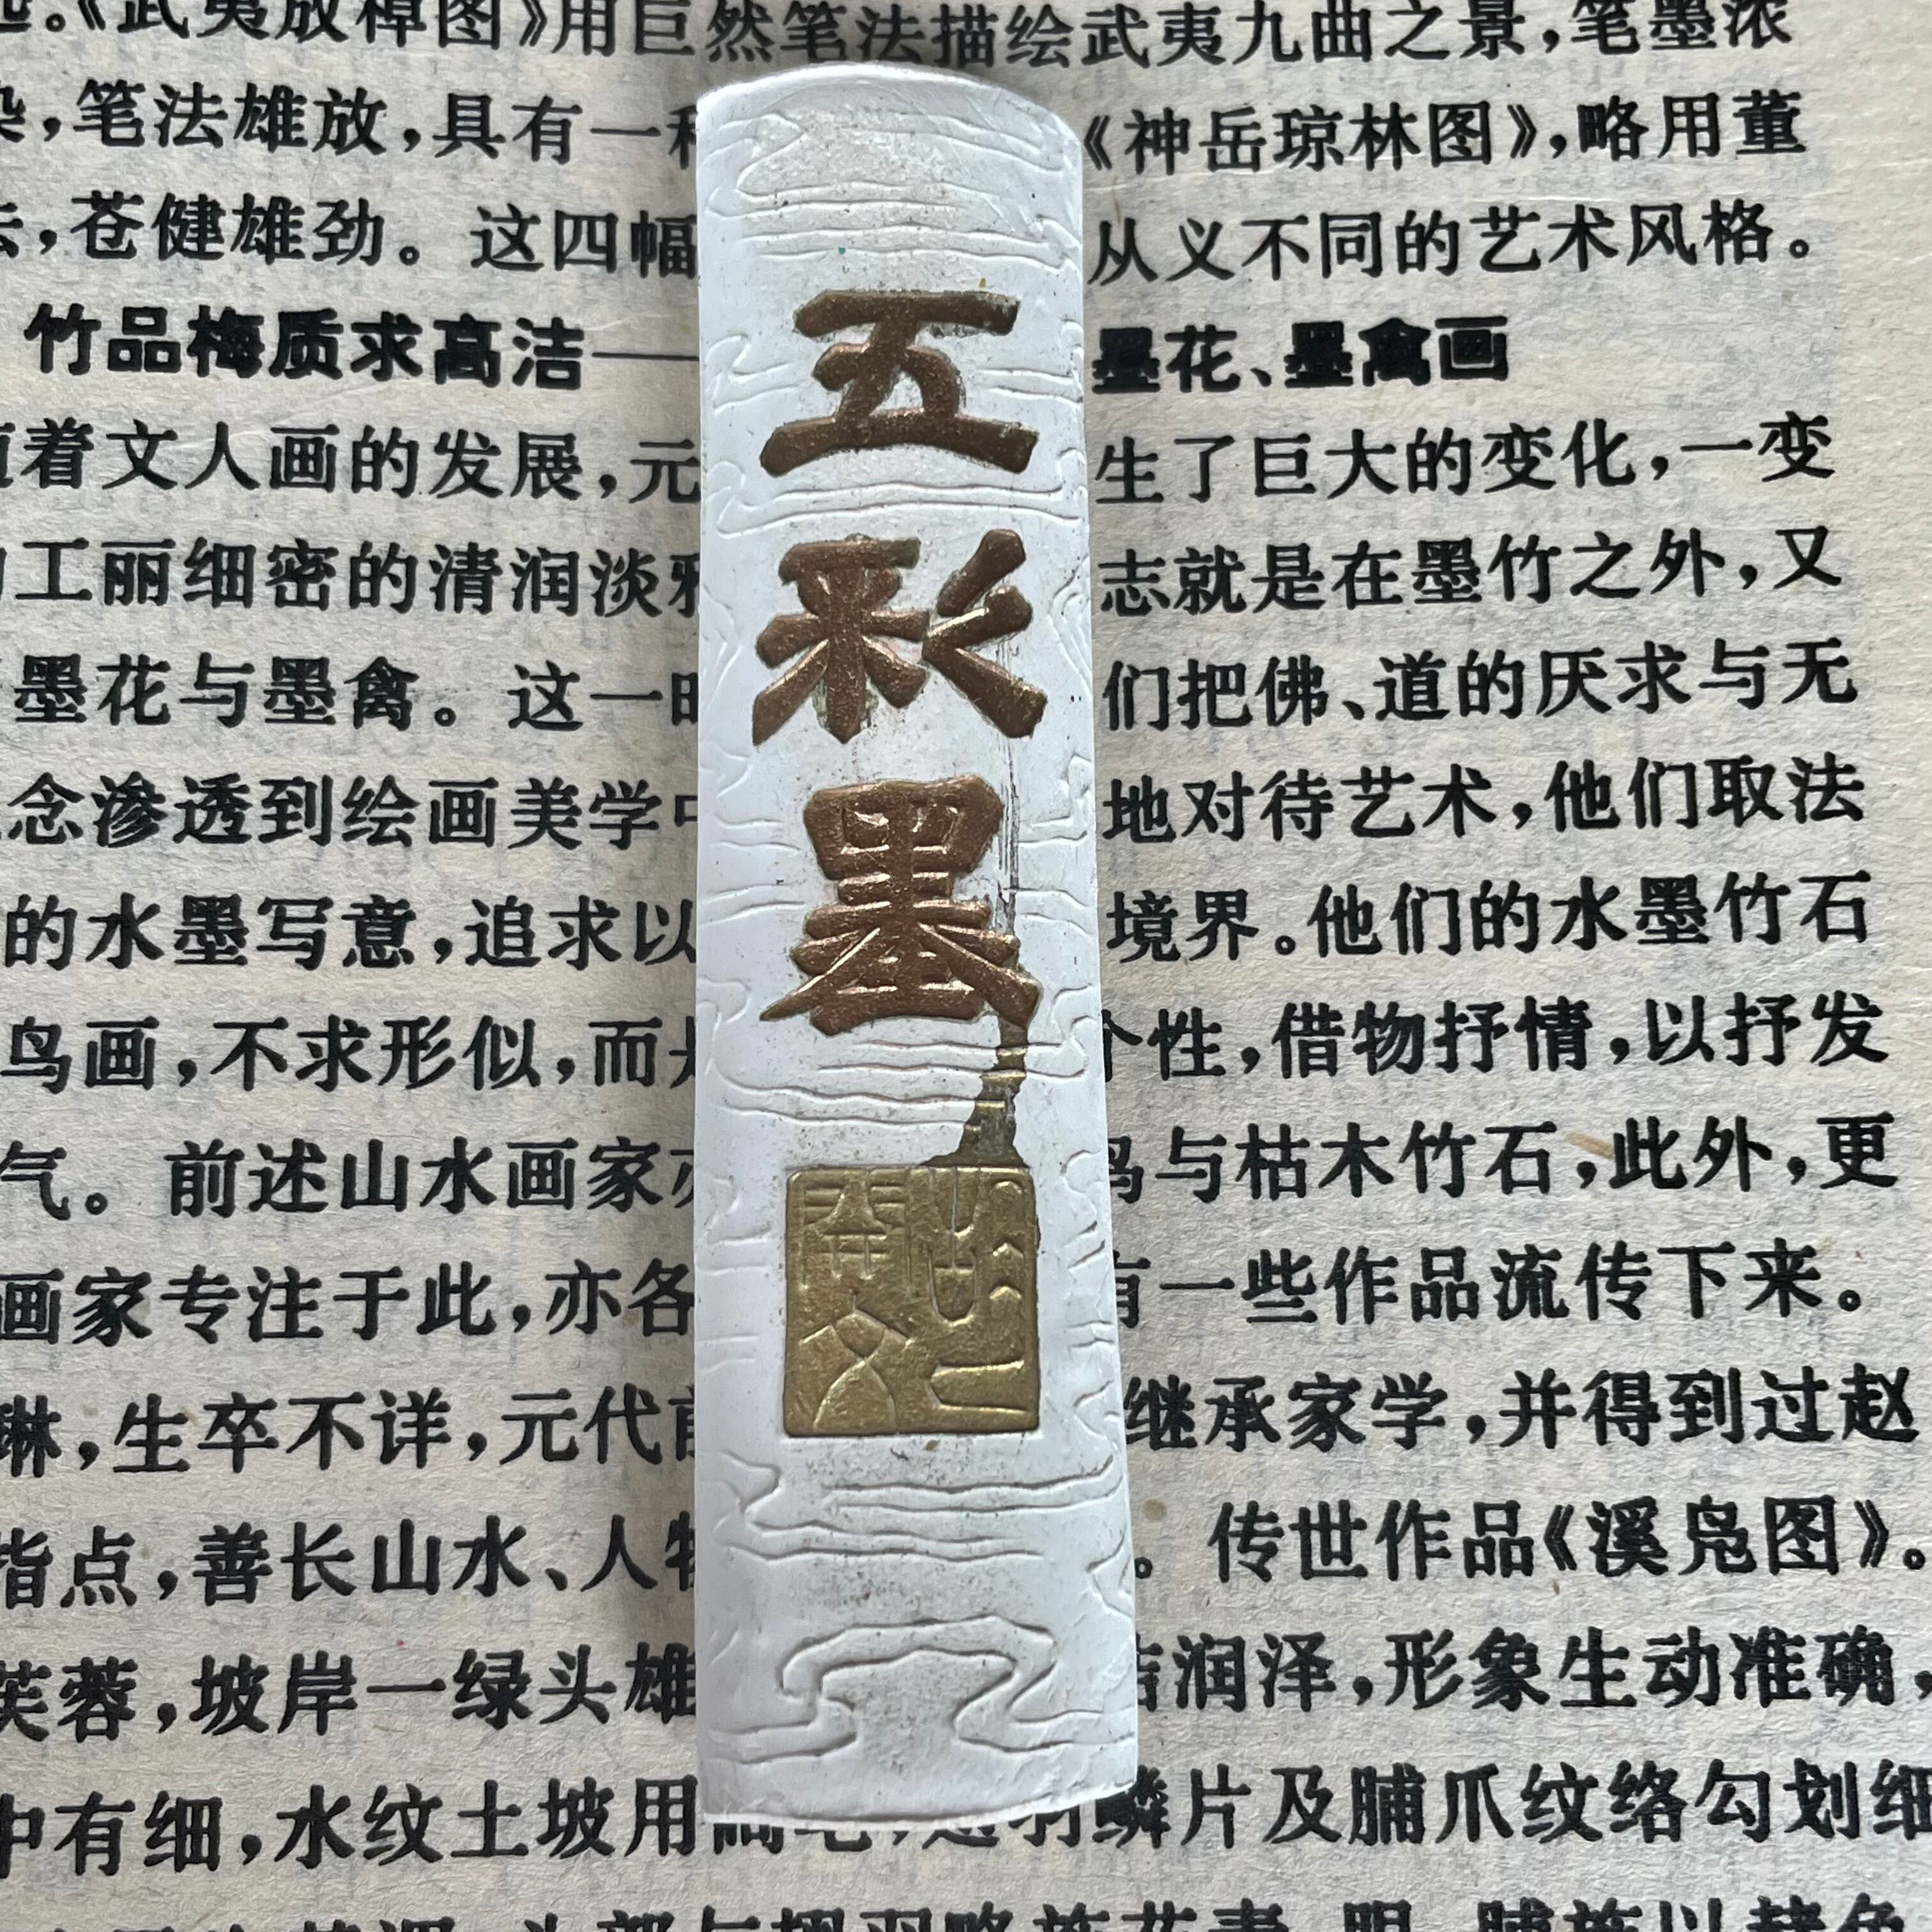 。《武夷放棹图》用巨然笔法描绘武夷九曲之景，笔墨浓
染，笔法雄放，具有一 《神岳琼林图》，略用董
，苍健雄劲。这四幅 从义不同的艺术风格。
竹品梅质求高洁—— 墨花、墨禽画
着文人画的发展，元 生了巨大的变化，一变
工丽细密的清润淡雅 志就是在墨竹之外，又
墨花与墨禽。这一时 们把佛、道的厌求与无
念渗透到绘画美学中 地对待艺术，他们取法
的水墨写意，追求以 境界。他们的水墨竹石
鸟画，不求形似，而是 个性，借物抒情，以抒发
气。前述山水画家亦 鸟与枯木竹石，此外，更
画家专注于此，亦各 有一些作品流传下来。
琳，生卒不详，元代前 继承家学，并得到过赵
指点，善长山水、人物 。传世作品《溪凫图》。
芙蓉，坡岸一绿头雄 洁润泽，形象生动准确，
中有细，水纹土坡用 羽鳞片及脯爪纹络勾划细
五彩墨